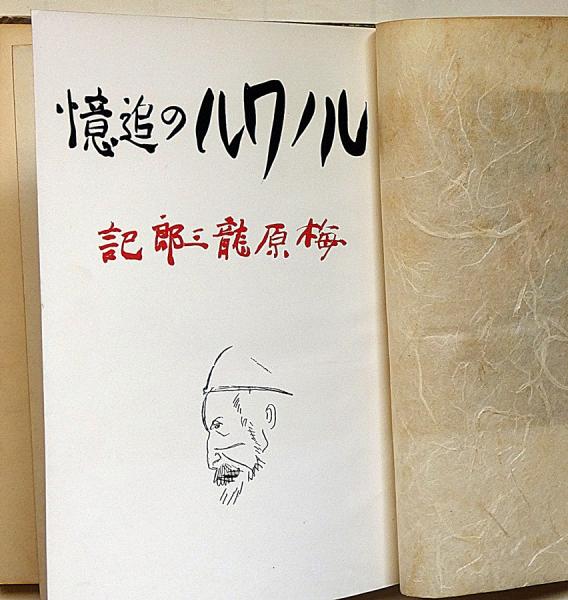 ルノワルの追憶
梅原龍三郎記